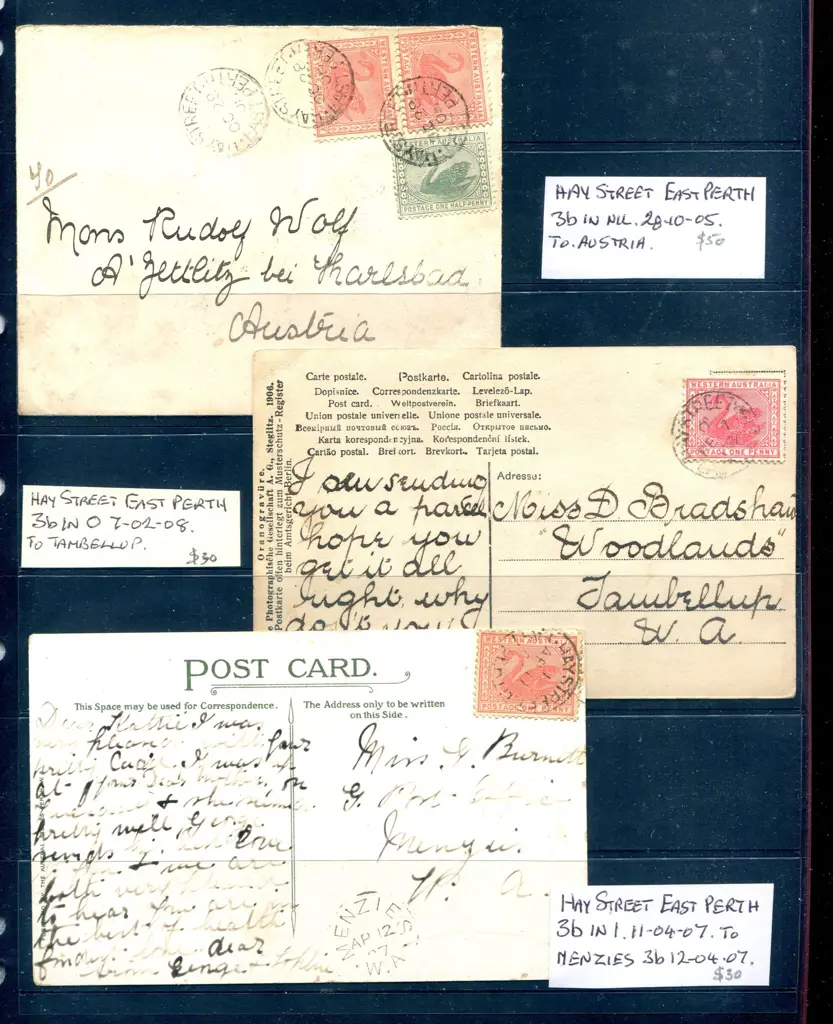 HAY STREET
PERTH
HAY STREET
PERTH
WESTERN AUSTRALIA
POSTAGE ONE HALF-PENNY
40
Mons Rudolf Wolf
A' Zettlitz bei Karlsbad
Austria
HAY STREET EAST PERTH
3b IN NIL. 28-10-05.
TO. AUSTRIA. $50
Carte postale. Postkarte. Cartolina postale.
Dopisnice. Correspondenzkarte. Levelező-Lap.
Post card. Weltpostverein. Briefkaart.
Union postale universelle. Unione postale universale.
Всемірный почтовый союзъ. Россія. Открытое письмо.
Karta korespondencyjna. Korespondenční lístek.
Cartão postal. Brefkort. Brevkort. Tarjeta postal.
Oranogravüre.
Photographische Gesellschaft A. G., Steglitz, 1906.
Postkarte offen hinterlegt zum Musterschutz-Register
beim Amtsgericht Berlin.
WESTERN AUSTRALIA
POSTAGE ONE PENNY
I am sending
you a parcel
hope you
get it all
right why
don't you
Adresse:
Miss D Bradshaw
"Woodlands"
Tambellup
W. A.
HAY STREET EAST PERTH
3b IN O 7-02-08.
TO TAMBELLUP.
$30
POST CARD.
This Space may be used for Correspondence.
The Address only to be written
on this Side.
WESTERN AUSTRALIA
POSTAGE ONE PENNY
HAY STREET
Dear Hattie I was
very pleased with your
pretty Card. I was up
at your Dear mother, on
& she seemed
pretty well George
sends his love
& we are
both very pleased
to hear you are in
the best of health
fondest love dear
from George &
Miss G. Burnett
G. Post Office
Menzies
W. A.
MENZIES
AP 12
07
W.A
HAY STREET EAST PERTH
3b IN 1. 11-04-07. TO
MENZIES 3b 12-04-07.
$30